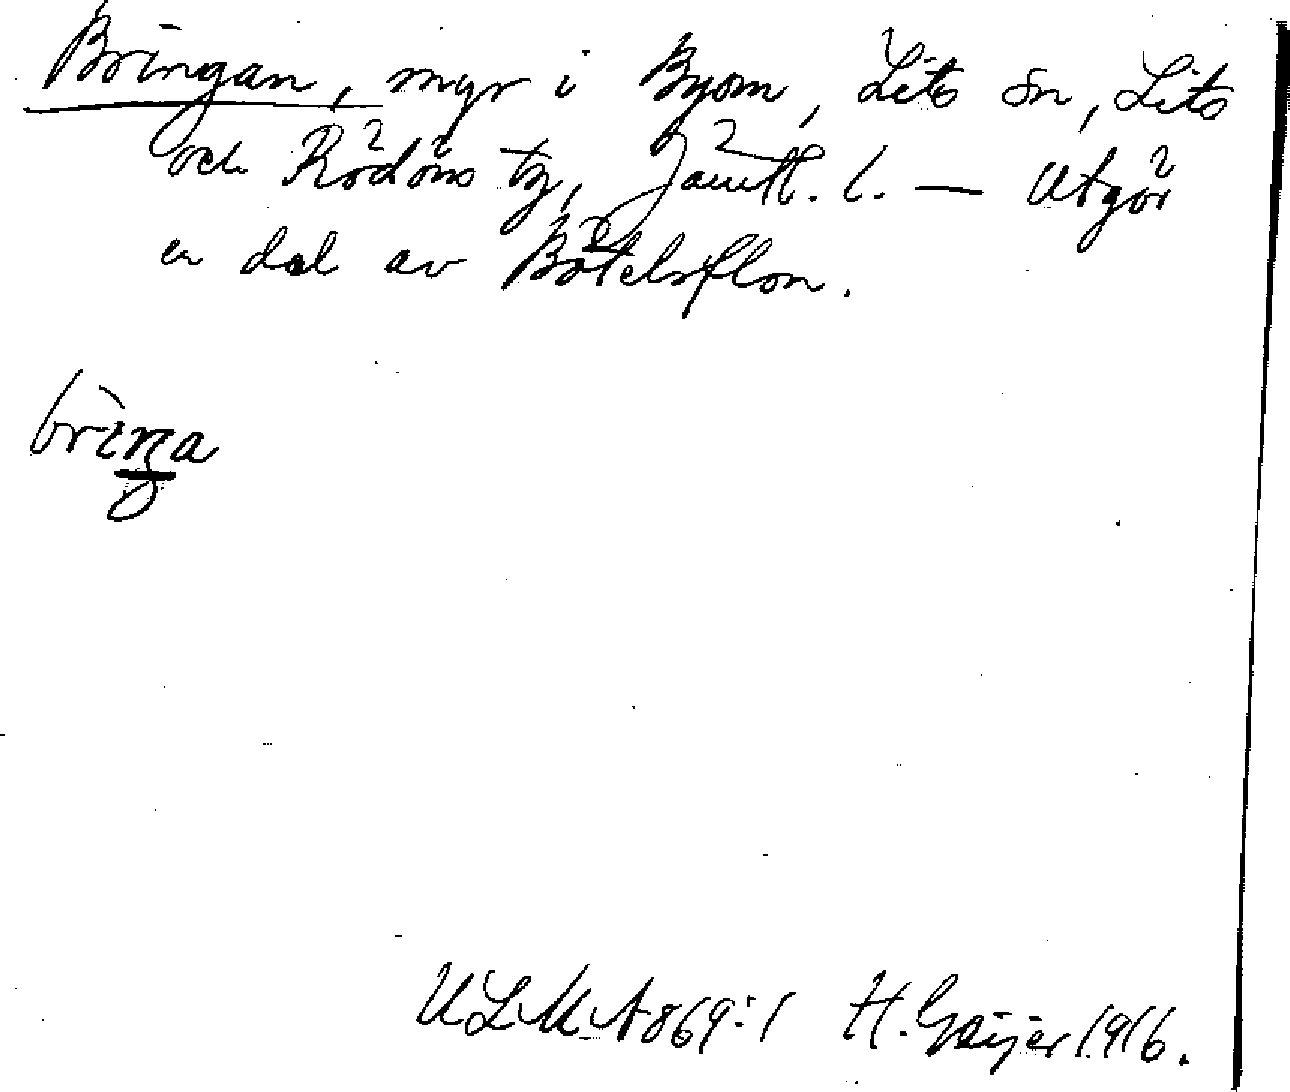 Bringan, myr i Byom, Lits sn, Lits
och Rödöns tg, Jämtl. l. — Utgör
en del av Bötelsflon.
brìŋa
ULMA 869:1 H. Geijer 1916.